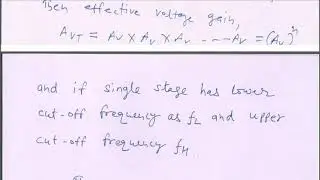 Then effective voltage gain,
AVT = AV X AV X AV - - - AV = (AV)^n
and if single stage has lower
cut-off frequency as fL and upper
cut-off frequency fH